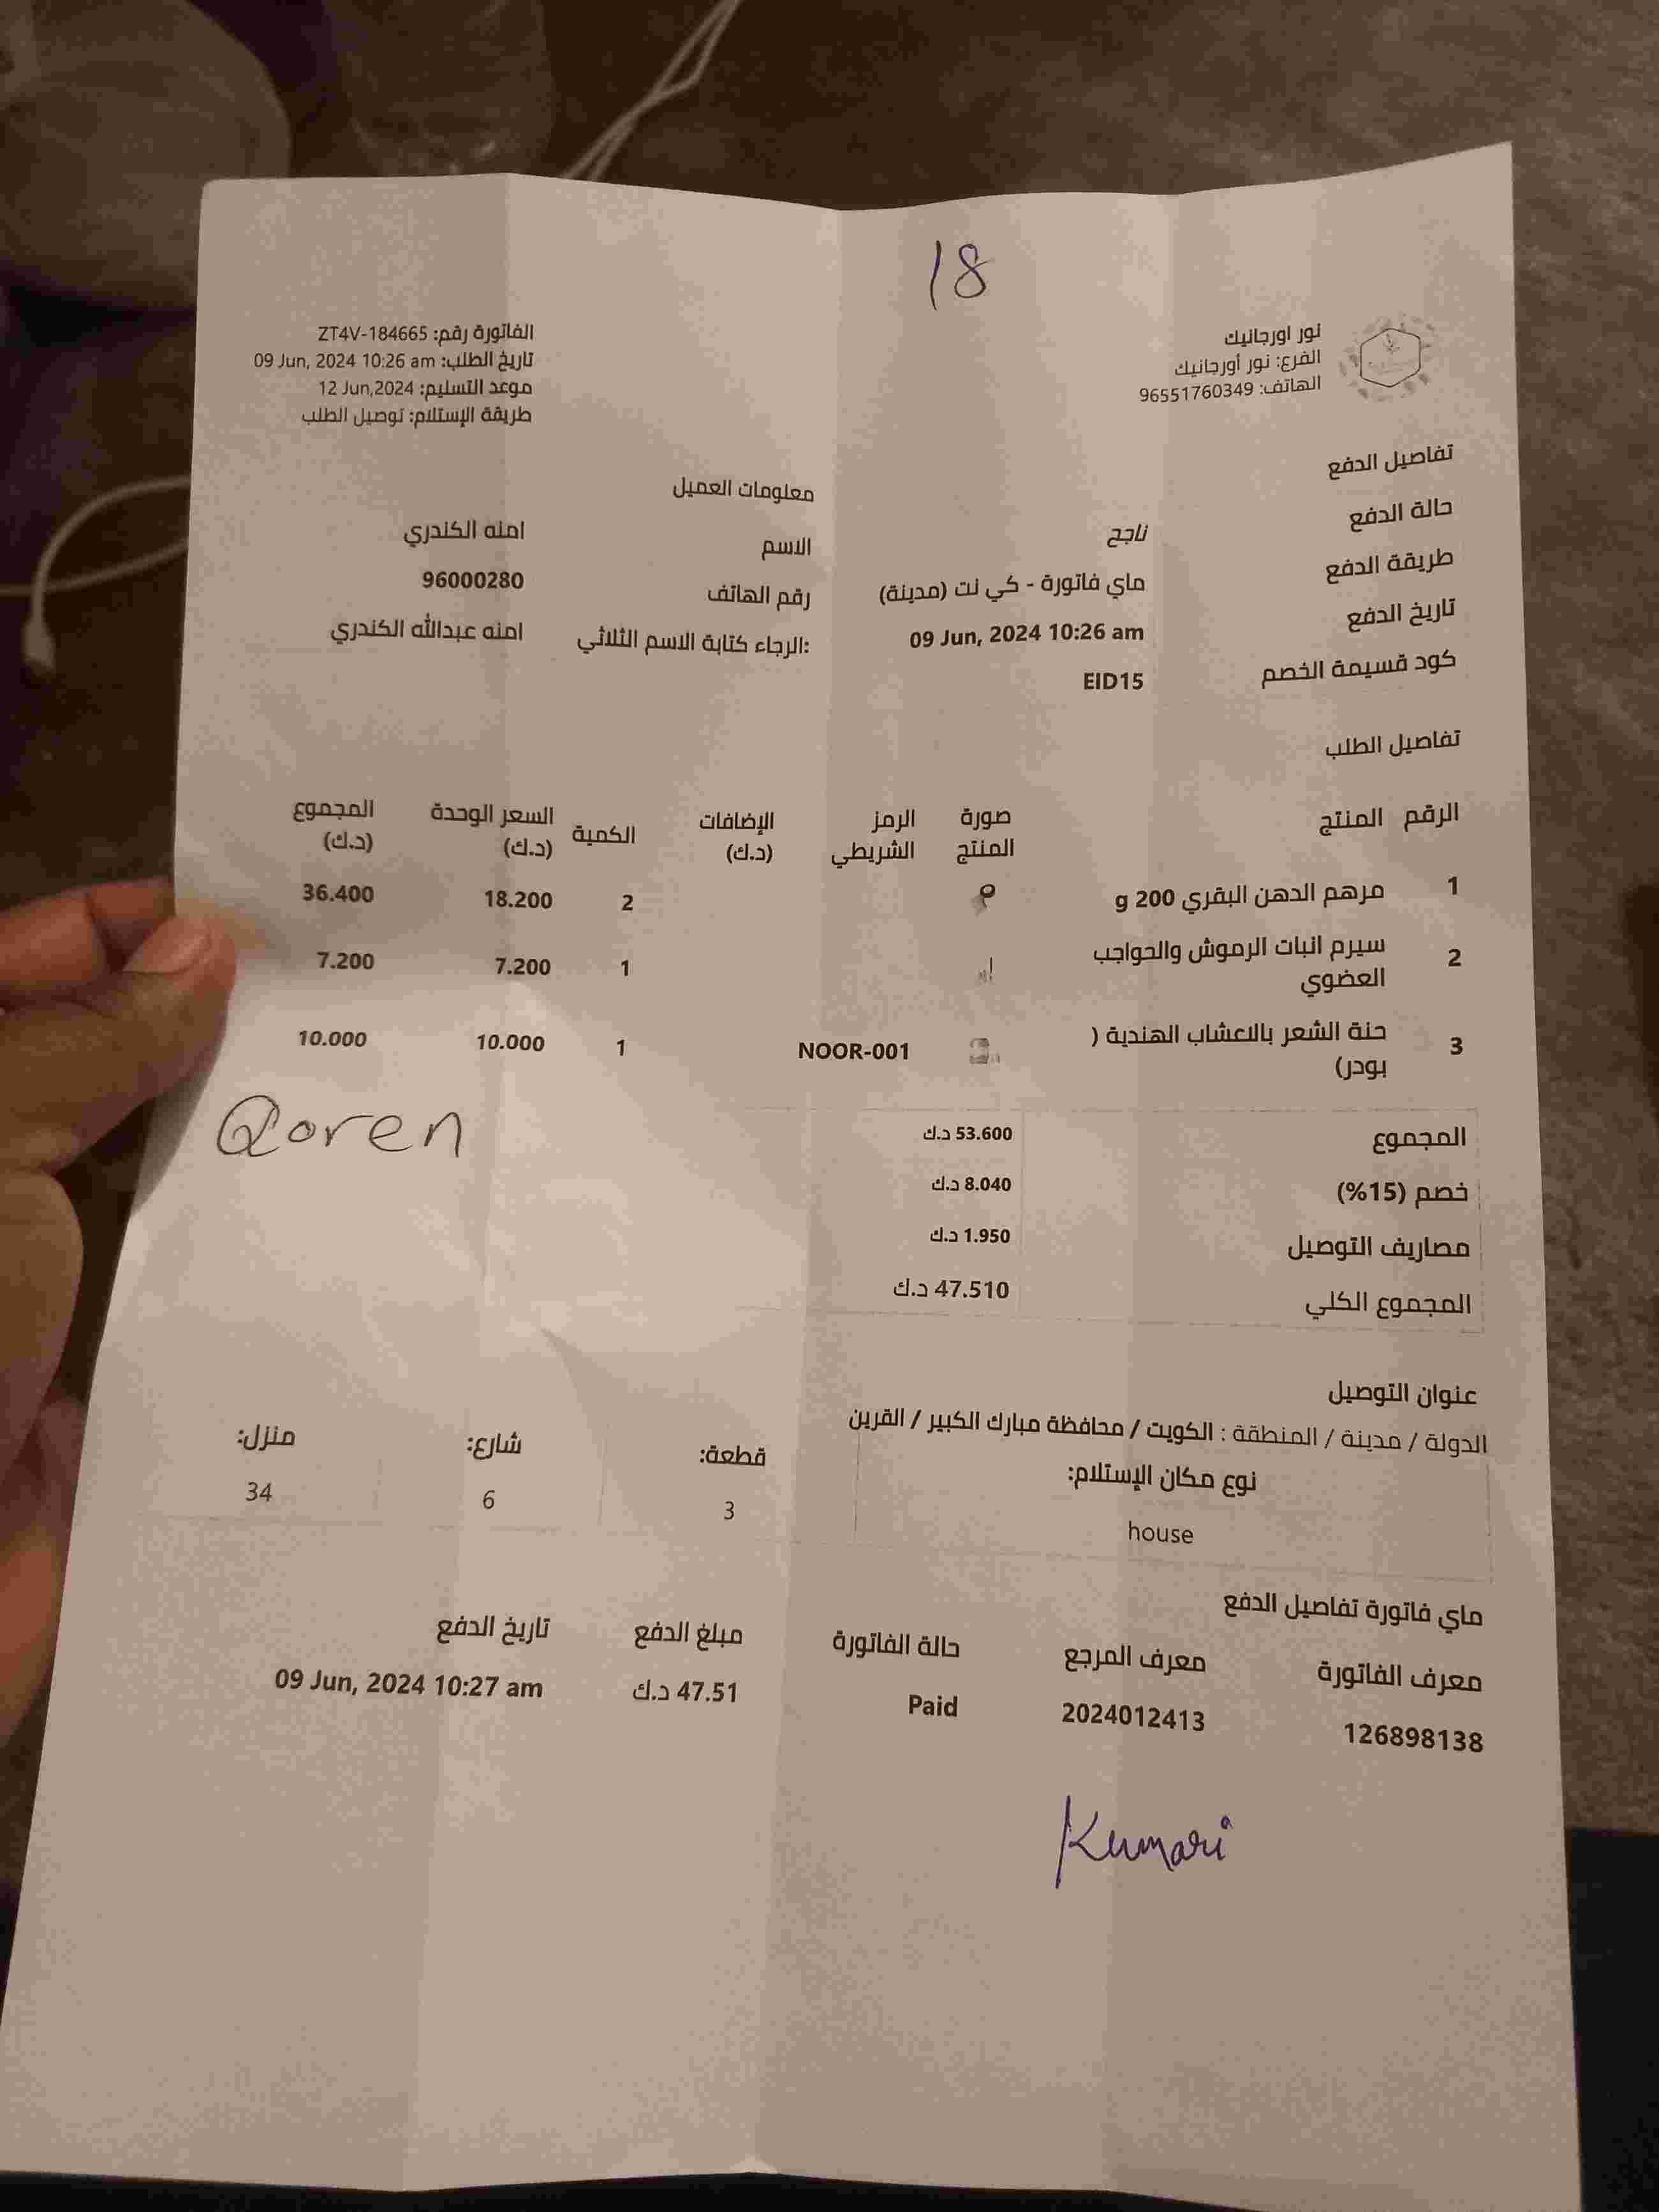 18
نور اورجانيك
الفرع: نور أورجانيك
الهاتف: 96551760349
الفاتورة رقم: ZT4V-184665
تاريخ الطلب: 09 Jun, 2024 10:26 am
موعد التسليم: 12 Jun,2024
طريقة الإستلام: توصيل الطلب
تفاصيل الدفع
حالة الدفع ناجح
طريقة الدفع ماي فاتورة - كي نت (مدينة)
تاريخ الدفع 09 Jun, 2024 10:26 am
كود قسيمة الخصم EID15
معلومات العميل
الاسم امنه الكندري
رقم الهاتف 96000280
الرجاء كتابة الاسم الثلاثي: امنه عبدالله الكندري
تفاصيل الطلب
الرقم المنتج صورة المنتج الرمز الشريطي الإضافات (د.ك) الكمية السعر الوحدة (د.ك) المجموع (د.ك)
1 مرهم الدهن البقري 200 g 2 18.200 36.400
2 سيرم انبات الرموش والحواجب العضوي 1 7.200 7.200
3 حنة الشعر بالاعشاب الهندية ( بودر) NOOR-001 1 10.000 10.000
Qoren
المجموع 53.600 د.ك
خصم (15%) 8.040 د.ك
مصاريف التوصيل 1.950 د.ك
المجموع الكلي 47.510 د.ك
عنوان التوصيل
الدولة / مدينة / المنطقة : الكويت / محافظة مبارك الكبير / القرين
نوع مكان الإستلام: قطعة: شارع: منزل:
house 3 6 34
ماي فاتورة تفاصيل الدفع
معرف الفاتورة معرف المرجع حالة الفاتورة مبلغ الدفع تاريخ الدفع
126898138 2024012413 Paid 47.51 د.ك 09 Jun, 2024 10:27 am
Kumari